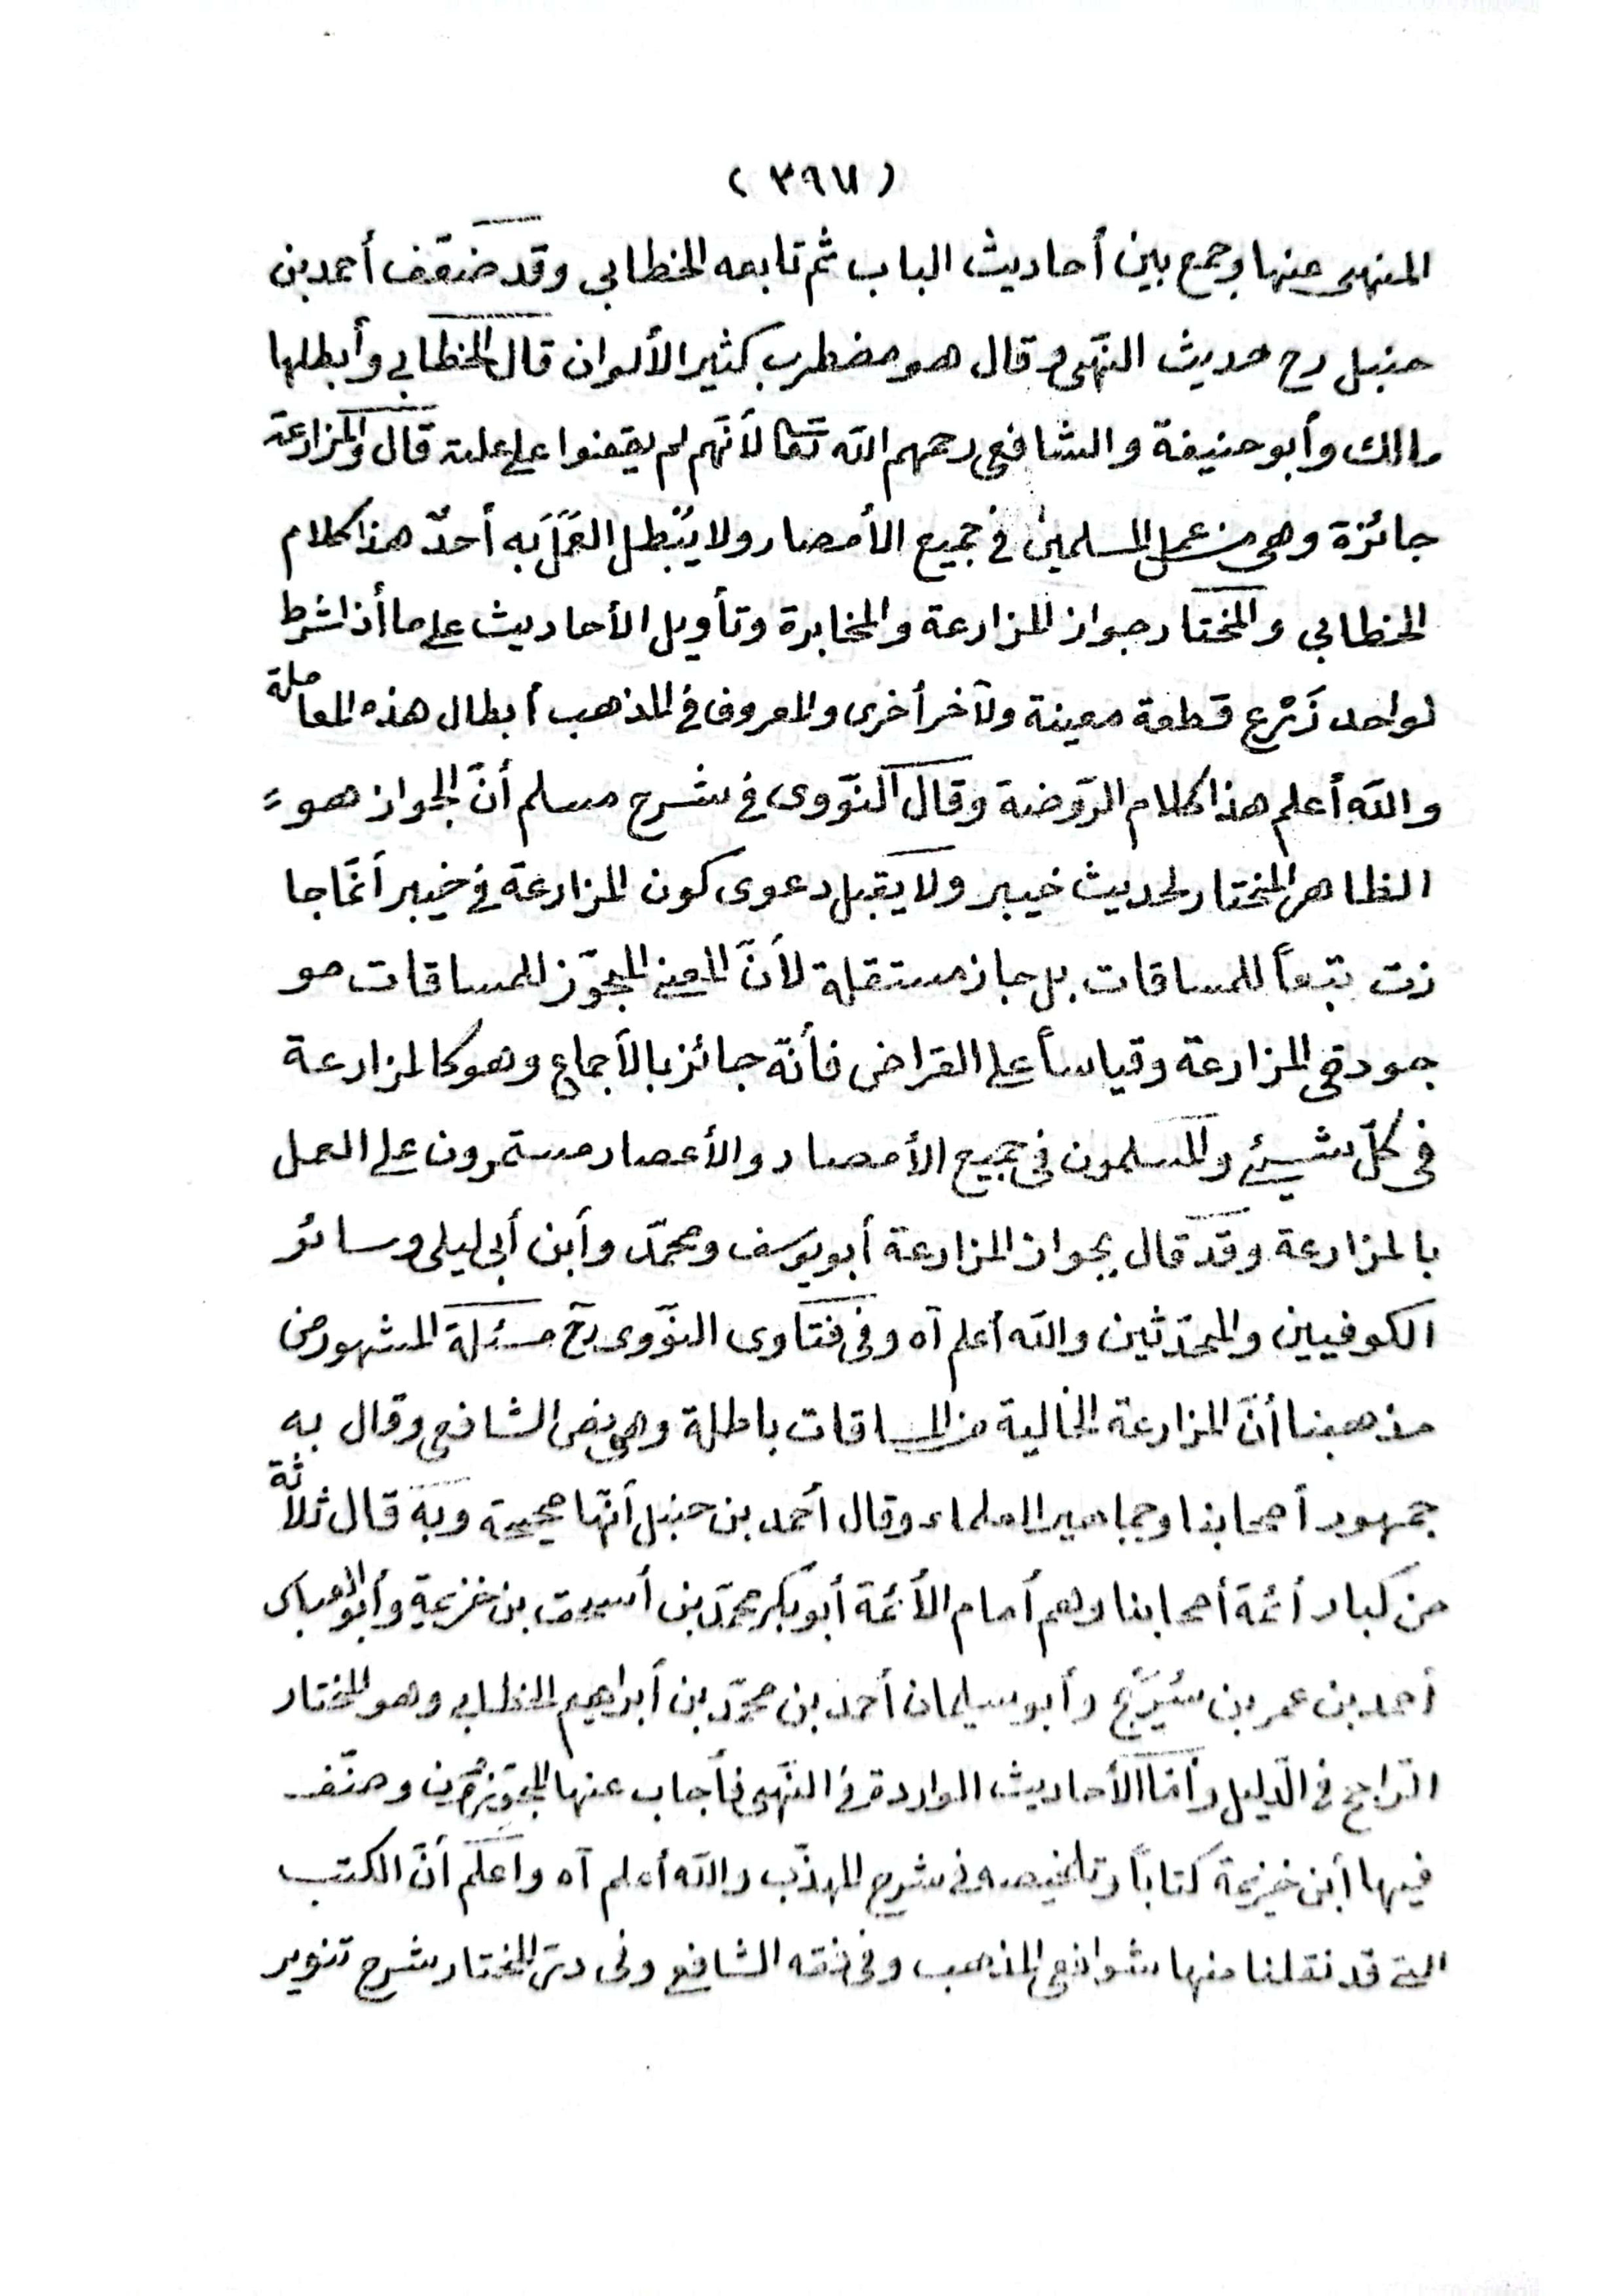 ( ٣٩٧ )
المنهى عنها وجمع بين أحاديث الباب ثم تابعه الخطابي وقد ضعّف أحمد بن
حنبل رح حديث النّهى وقال هو مضطرب كثير الألوان قال الخطابي وأبطلها
مالك وأبو حنيفة والشافعى رحمهم الله تعا لأنّهم لم يقفوا على علته قال والمزارعة
جائزة وهى من عمل المسلمين فى جميع الأمصار ولا يُبْطِل العَمَلَ به أحدٌ هذا كلام
الخطابي والمختار جواز المزارعة والمخابرة وتأويل الأحاديث على ما أذا شرط
لواحد زَرْع قطعة معينة ولآخر أخرى والمعروف فى المذهب أبطال هذه المعاملة
والله أعلم هذا كلام الرّوضة وقال النّووى فى شرح مسلم أنّ الجواز هو
الظاهر المختار لحديث خيبر ولا يقبل دعوى كون المزارعة فى خيبر أنّما جا
زت تبعاً للمساقات بل جاز مستقلة لأنّ المعنى المجوّز للمساقات مو
جود فى المزارعة وقياساً على القراض فأنّه جائز بالأجماع وهو كالمزارعة
فى كلّ شيئ والمسلمون فى جميع الأمصار والأعصار مستمرون على العمل
بالمزارعة وقد قال بجواز المزارعة أبو يوسف ومحمّد وأبن أبى ليلى وسائر
الكوفيين والمحدّثين والله أعلم آه وفى فتاوى النوّوى رح مسئلة المشهور من
مذهبنا أنّ المزارعة الخالية من المساقات باطلة وهى نص الشافعى وقال به
جمهور أصحابنا وجماهير العلماء وقال أحمد بن حنبل أنّها صحيحة وبه قال ثلاثة
من كبار أئمة أصحابنا وهم أمام الأئمة أبو بكر محمّد بن أسحق بن خزيمة وأبو العباس
أحمد بن عمر بن سُرَيْج وأبو سيلمان أحمد بن محمّد بن أبراهيم الخطابي وهو المختار
الرّاجح فى الدّليل وأمّا الأحاديث الواردة فى النّهى فأجاب عنها المجوّزون وصنّف
فيها أبن خزيمة كتاباً وتلخيصه فى شرح المهذّب والله أعلم آه وأعلم أنّ الكتب
التى قد نقلنا منها شوافعى المذهب وفى فقه الشافعى وفى درّ المختار شرح تنوير